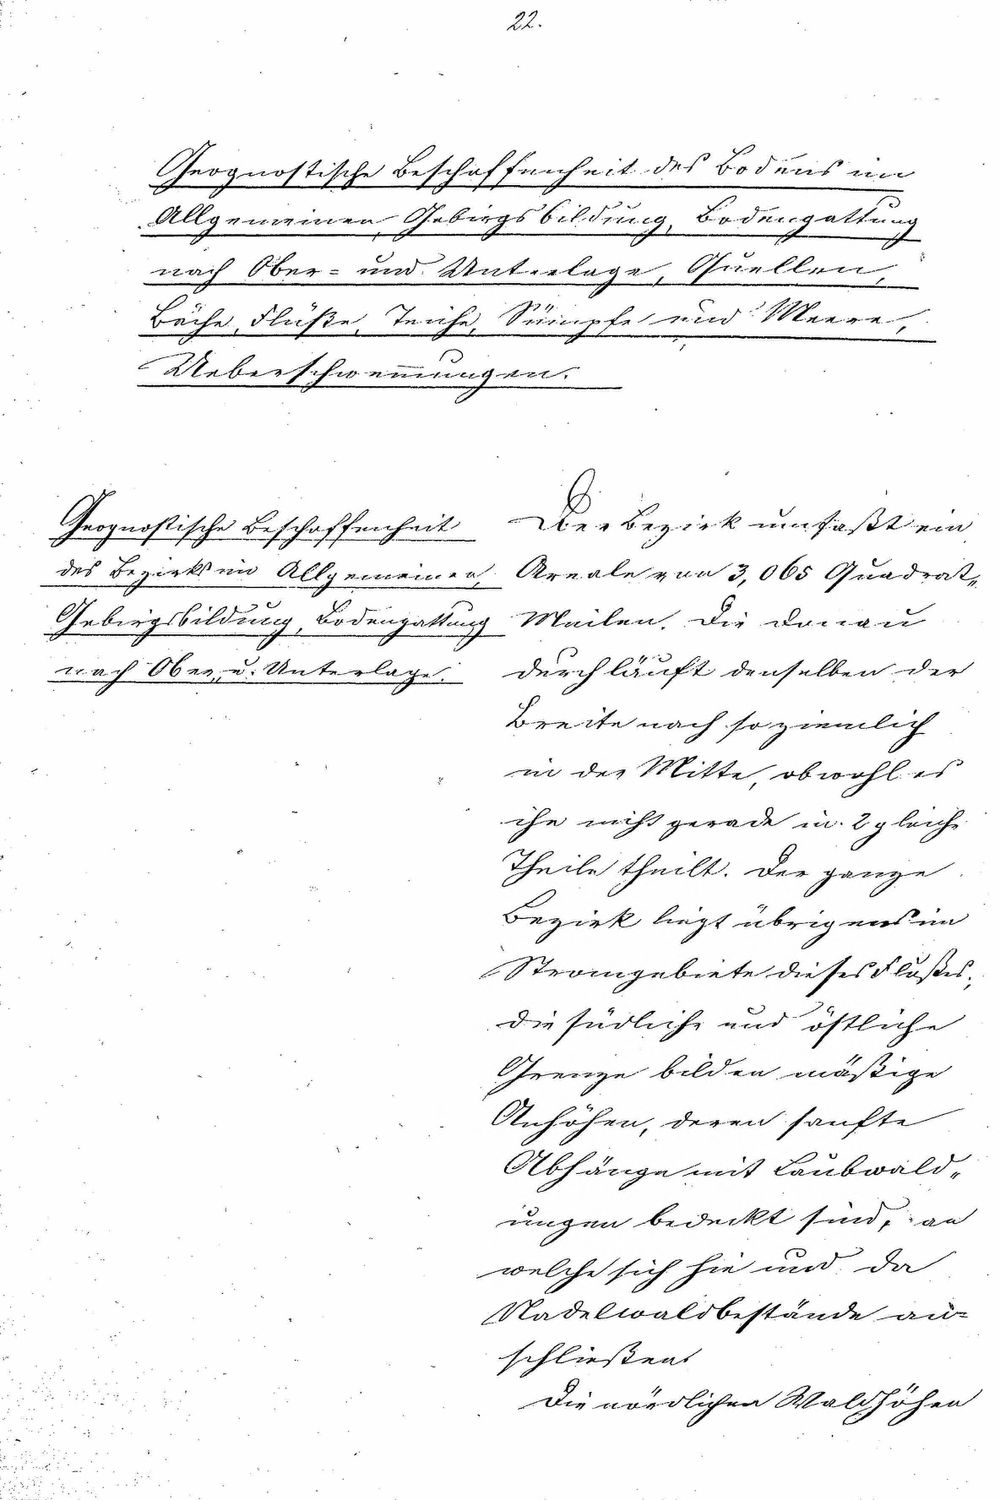 22.
Geognostische Beschaffenheit des Bodens im
Allgemeinen, Gebirgsbildung, Bodengattung
nach Ober= und Unterlage, Quellen,
Bäche, Flüße, Teiche, Sümpfe und Meere,
Ueberschwemmungen.
Geognostische Beschaffenheit
des Bezirks im Allgemeinen,
Gebirgsbildung, Bodengattung
nach Ober, u. Unterlage.
Der Bezirk umfaßt ein
Areale von 3,065 Quadrat„
Meilen. Die Donau
durchläuft denselben der
Breite nach so ziemlich
in der Mitte, obwohl es
ihn nicht gerade in 2 gleiche
Theile theilt. Der ganze
Bezirk liegt übrigens im
Stromgebiete dieses Flußes;
die südliche und östliche
Grenze bilden mäßige
Anhöhen, deren sanfte
Abhänge mit Laubwald„
ungen bedeckt sind, an
welche sich hie und da
Nadelwaldbestände an=
schließen.
Die nördlichen Waldhöhen